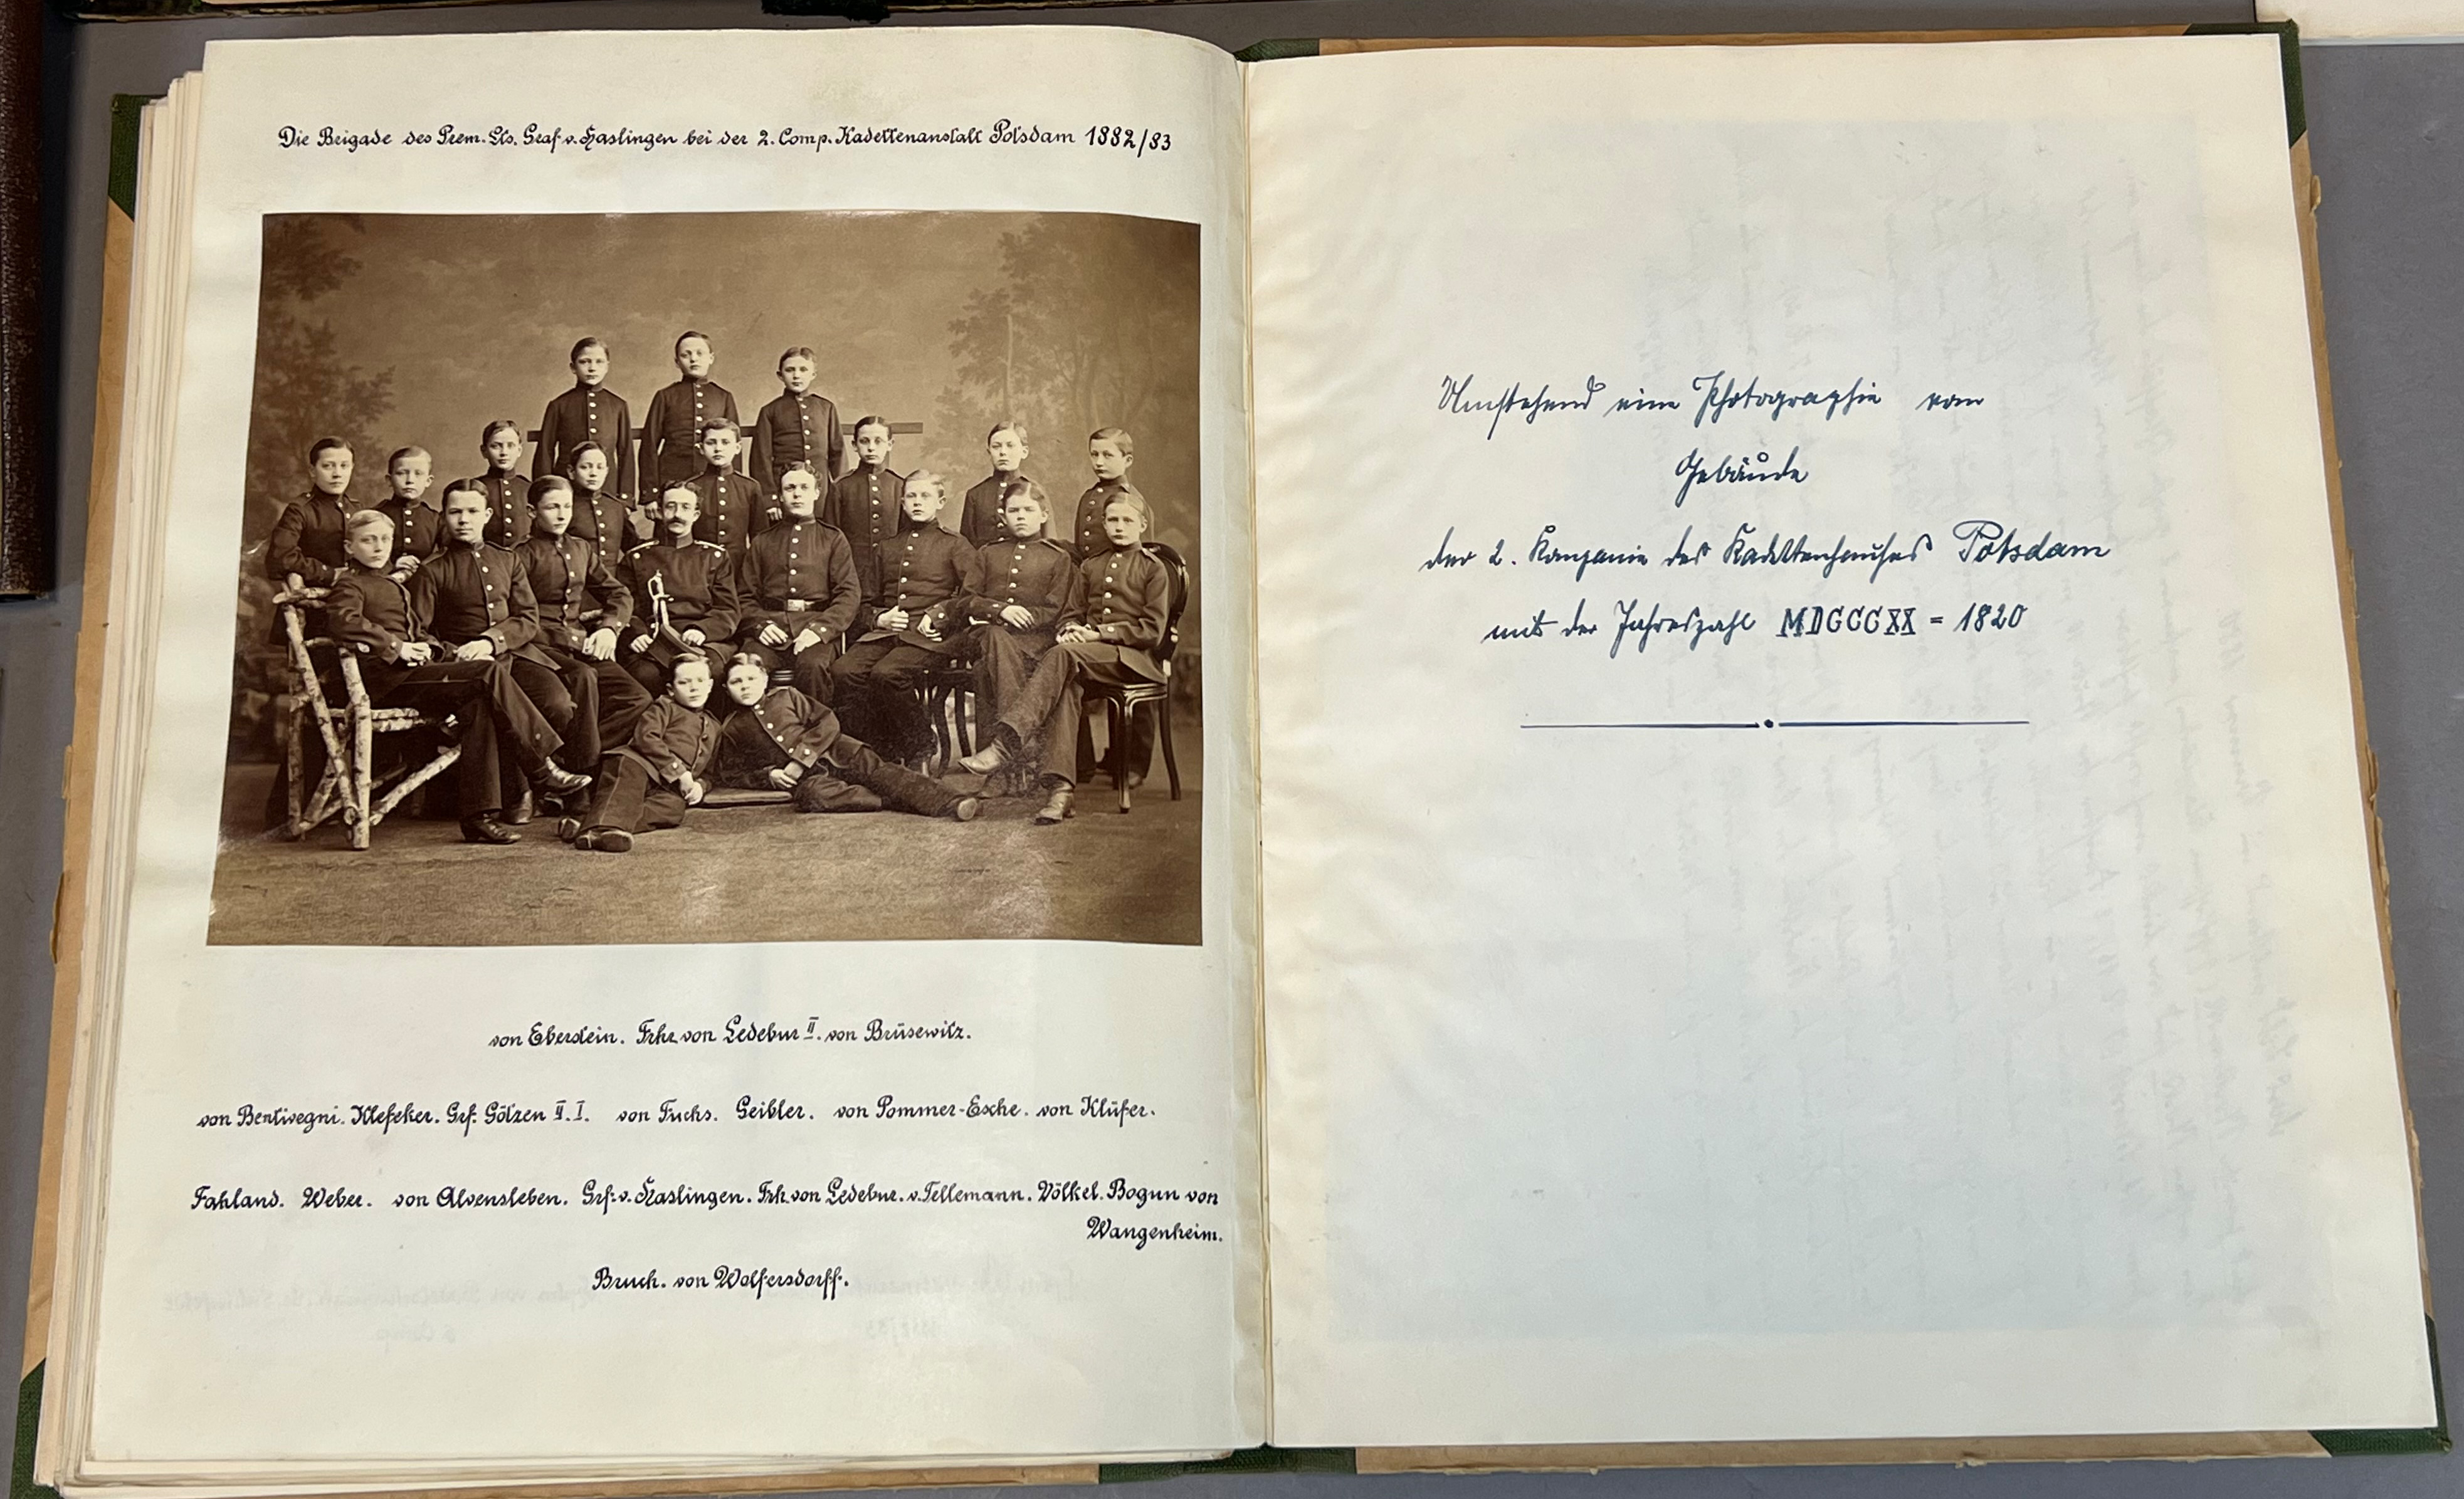 Die Brigade des Prem. Lts. Graf v. Haslingen bei der 2. Comp. Kadettenanstalt Potsdam 1882/83
von Eberstein. Frhr. von Ledebur II. von Brüsewitz.
von Bentivegni. Klefeker. Grf. Götzen II. I. von Fuchs. Geibler. von Pommer-Esche. von Klüfer.
Fahland. Weber. von Alvensleben. Grf. v. Haslingen. Frh. von Ledebur. v. Tellemann. Völkel. Bogun von
Wangenheim.
Bruch. von Wolfersdorff.
Umstehend eine Photographie vom
Gebäude
der 2. Kompanie des Kadettenhauses Potsdam
mit der Jahreszahl MDCCCXX = 1820